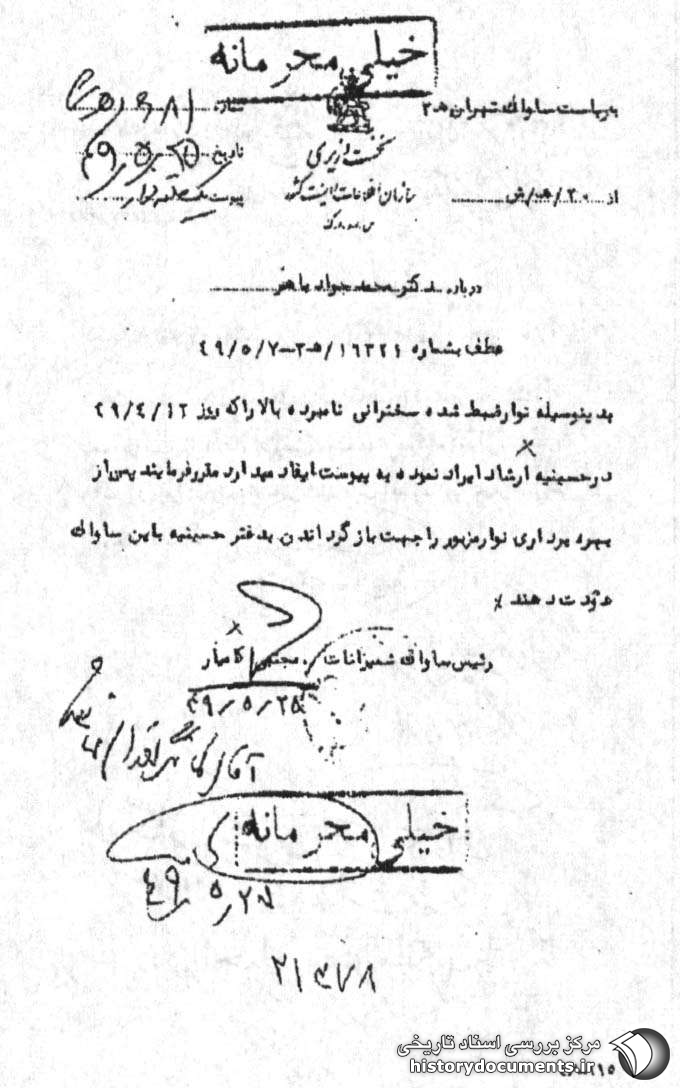 خیلی محرمانه
بریاست ساواک تهران ۳ه
شماره
نخست وزیری
تاریخ
سازمان اطلاعات و امنیت کشور
س.ا.و.ا.ک
از ۲۰/ه/ش
پیوست یک حلقه نوار
درباره دکتر محمد جواد باهنر
عطف بشماره ۱۶۳۲۱/ه۳–۴۹/۵/۷
بدینوسیله نوار ضبط شده سخنرانی نامبرده بالا را که روز ۴۹/۴/۱۲
در حسینیه ارشاد ایراد نموده به پیوست ایفاد میدارد مقرر فرمایند پس از
بهره برداری نوار مزبور را جهت بازگرداندن بدفتر حسینیه باین ساواک
عودت دهند
رئیس ساواک شمیرانات
۴۹/۵/۲۵
آقای
خیلی محرمانه
۴۹/۵/۲۷
مرکز بررسی اسناد تاریخی
historydocuments.ir